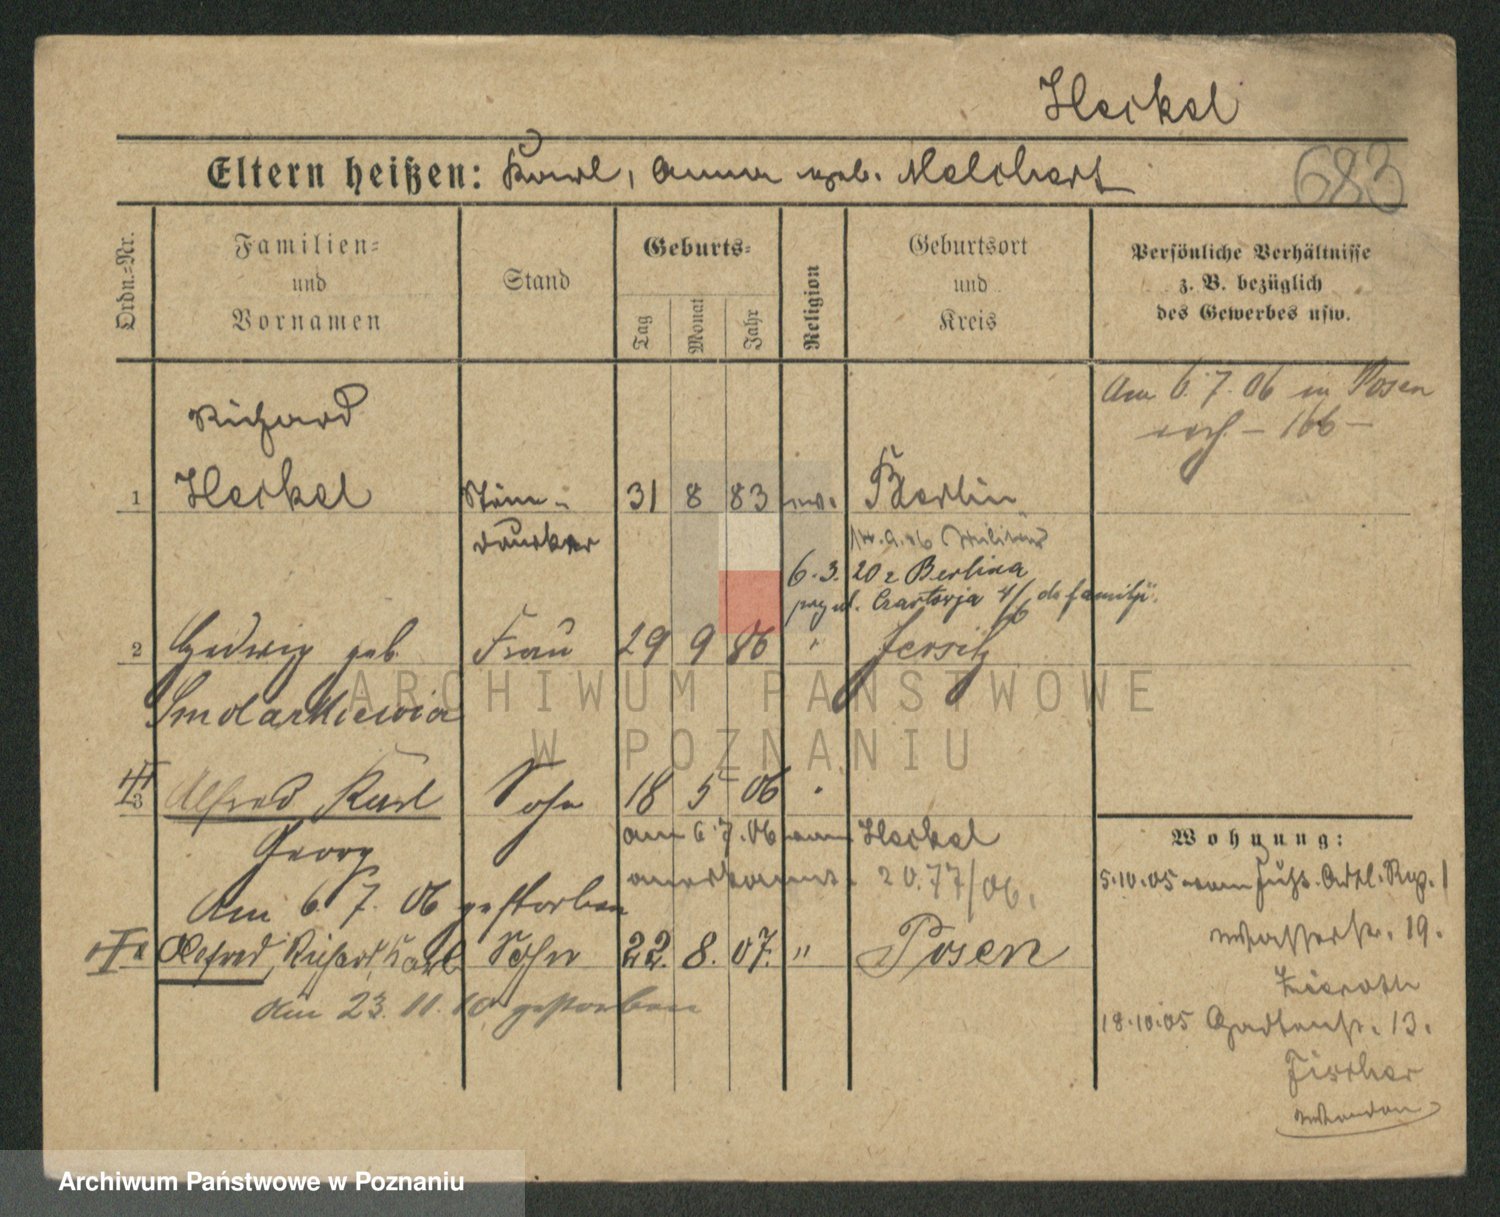 Heckel
Eltern heißen: Karl, Anna geb. Melchert
683
Ordn.=Nr.
Familien=
und
Vornamen
Stand
Geburts=
Tag
Monat
Jahr
Religion
Geburtsort
und
Kreis
Persönliche Verhältnisse
z. B. bezüglich
des Gewerbes usw.
Am 6.7.06 in Posen
– 166 –
Richard
1 Heckel Stein- 31 8 83 ev. Berlin
drucker
14.9.06 Militär
6.3.20 z Berlina
ul. do familji.
2 Hedwig geb. Frau 29 9 86 " Jersitz
Smolarkiewicz
3 Alfred Karl Sohn 18 5 06 "
Georg am 6.7.06 vom Heckel
anerkannt. 20.77/06.
Am 6. 7. 06 gestorben
Alfred, Richard, Karl Sohn 22. 8. 07. " Posen
Am 23.11.10 gestorben
Wohnung:
5.10.05 vom
Wasserstr. 19.
18.10.05 Gartenstr. 13.
Fischer
ARCHIWUM PAŃSTWOWE
W POZNANIU
Archiwum Państwowe w Poznaniu